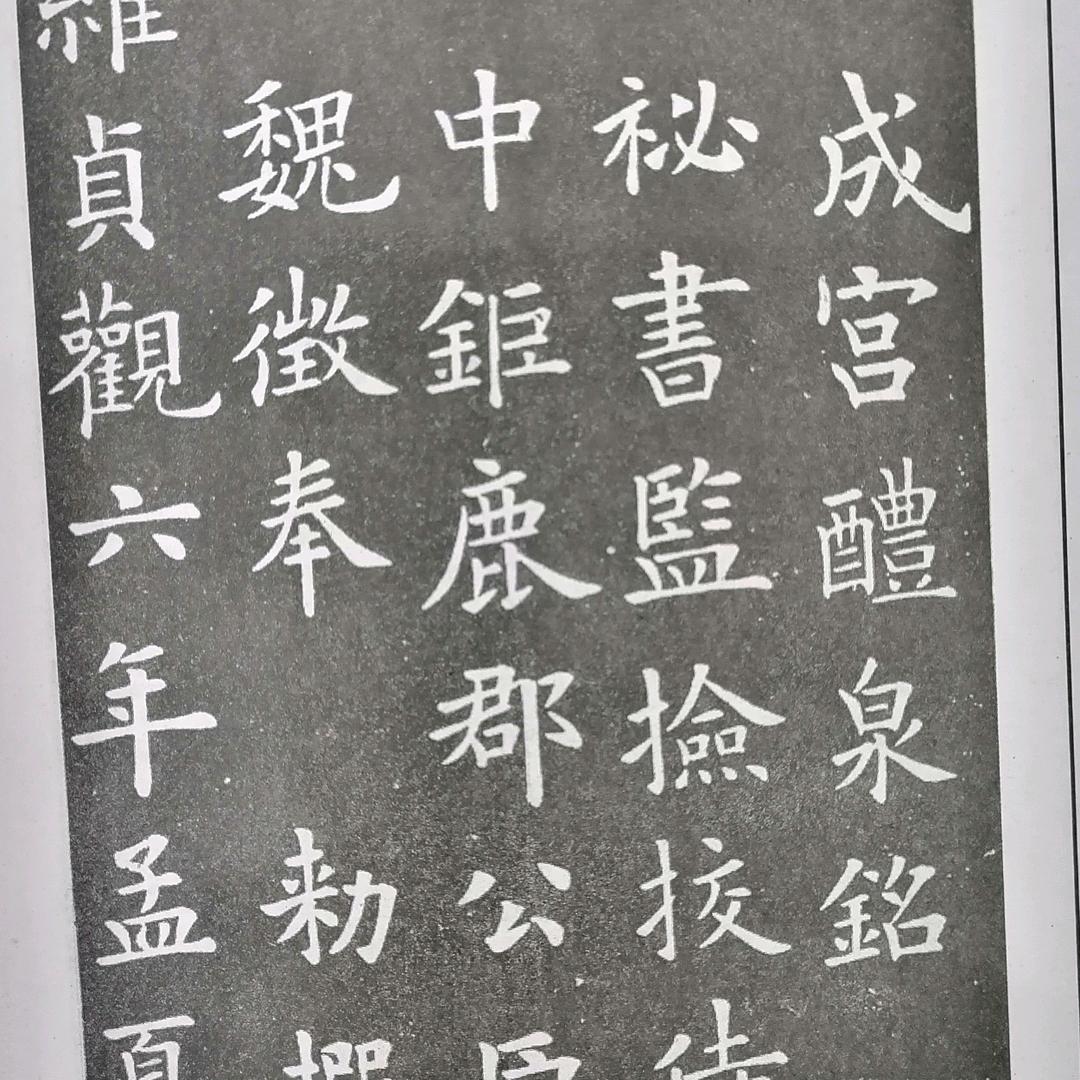 成宮醴泉銘
祕書監撿挍侍
中鉅鹿郡公臣
魏徵奉勑撰
維貞觀六年孟夏